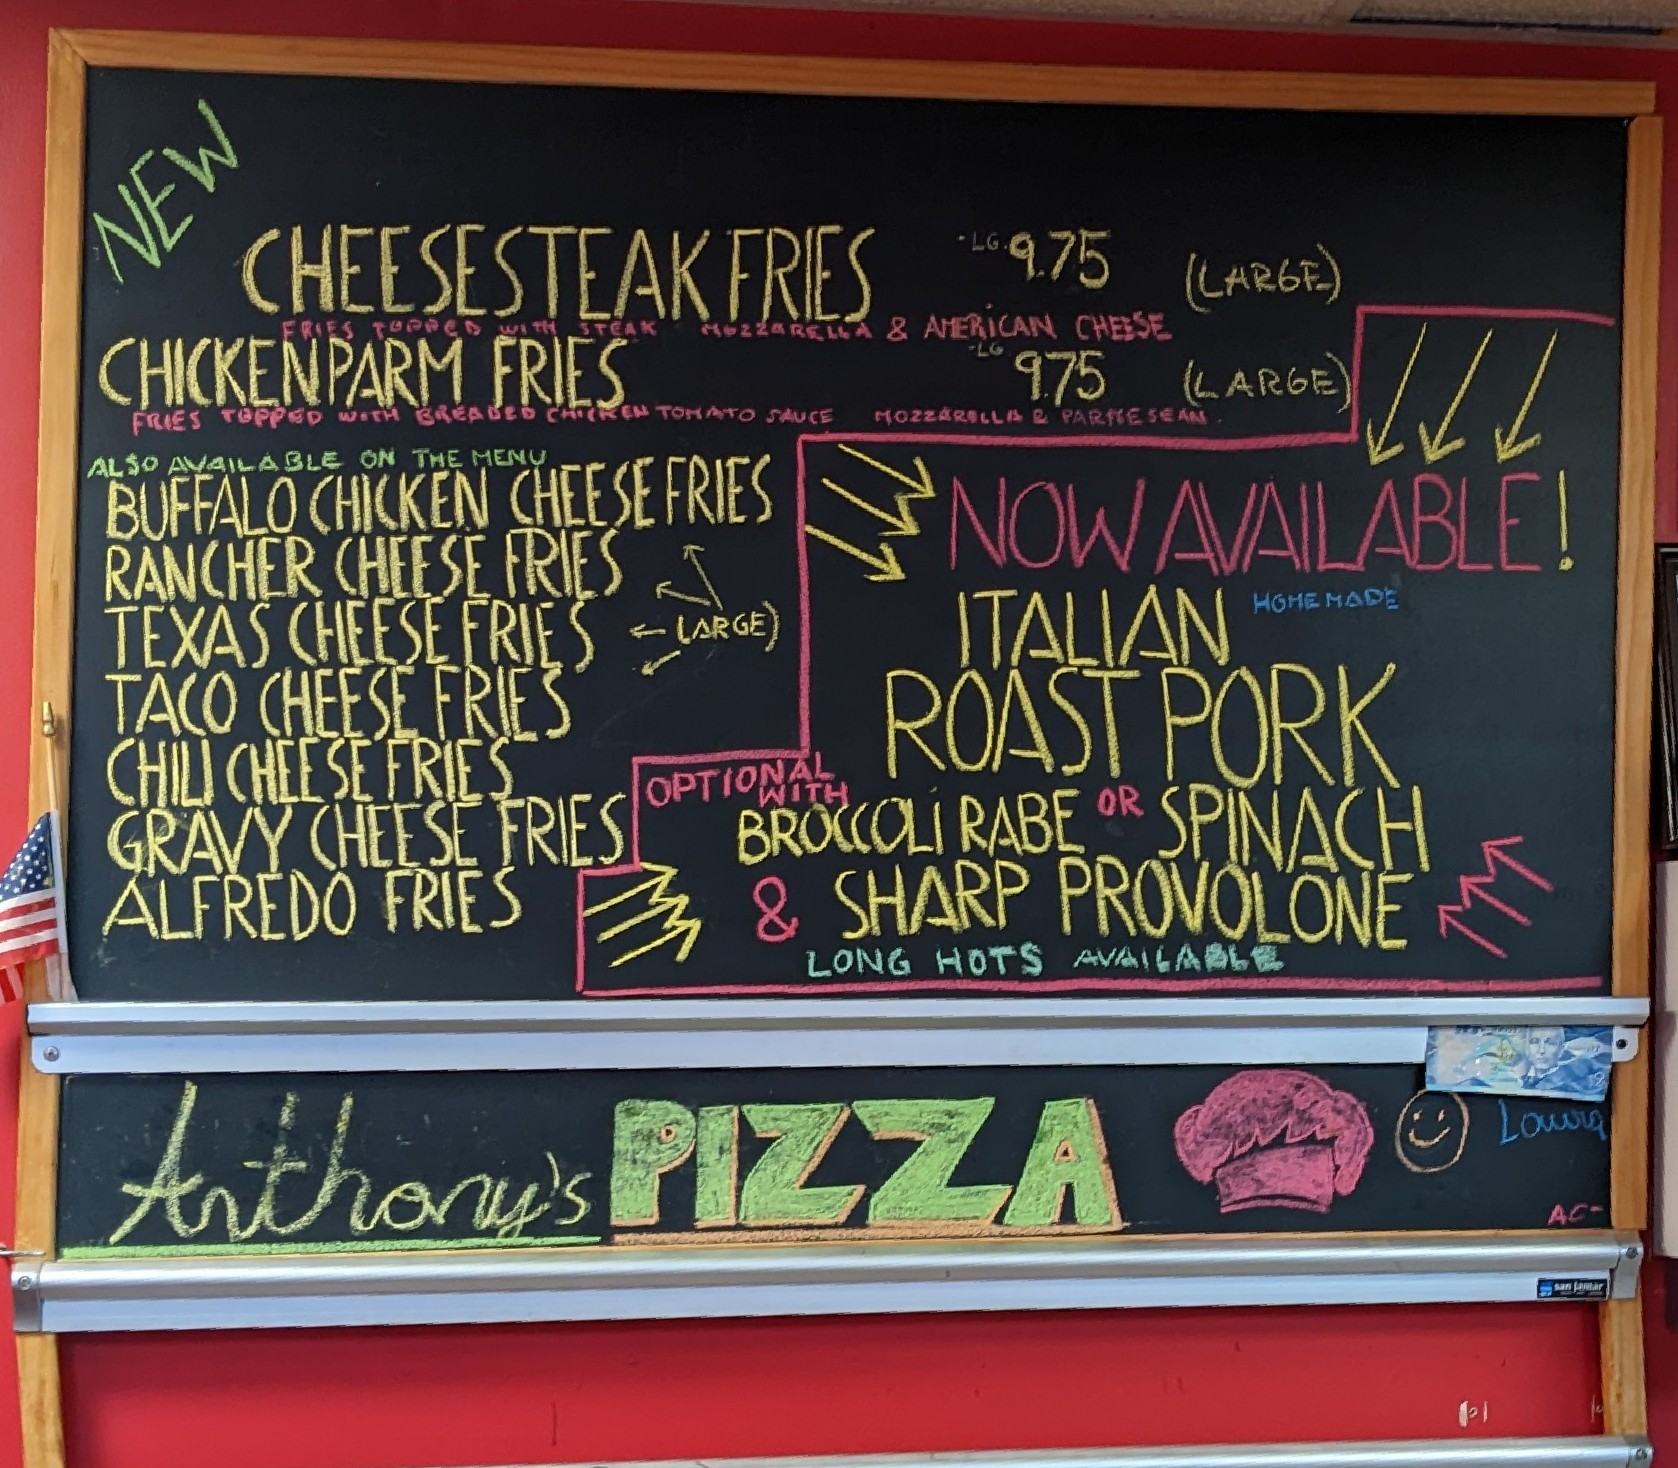 NEW
CHEESESTEAK FRIES -LG. 9.75 (LARGE)
FRIES TOPPED WITH STEAK MOZZARELLA & AMERICAN CHEESE
CHICKEN PARM FRIES -LG 9.75 (LARGE)
FRIES TOPPED WITH BREADED CHICKEN TOMATO SAUCE MOZZARELLA & PARMESEAN.
ALSO AVAILABLE ON THE MENU
BUFFALO CHICKEN CHEESE FRIES
RANCHER CHEESE FRIES
TEXAS CHEESE FRIES
LARGE)
TACO CHEESE FRIES
CHILI CHEESE FRIES
GRAVY CHEESE FRIES
ALFREDO FRIES
NOW AVAILABLE!
ITALIAN HOMEMADE
ROAST PORK
OPTIONAL
WITH
BROCCOLI RABE OR SPINACH
& SHARP PROVOLONE
LONG HOTS AVAILABLE
Anthony's PIZZA
Laura
AC-
san jamar